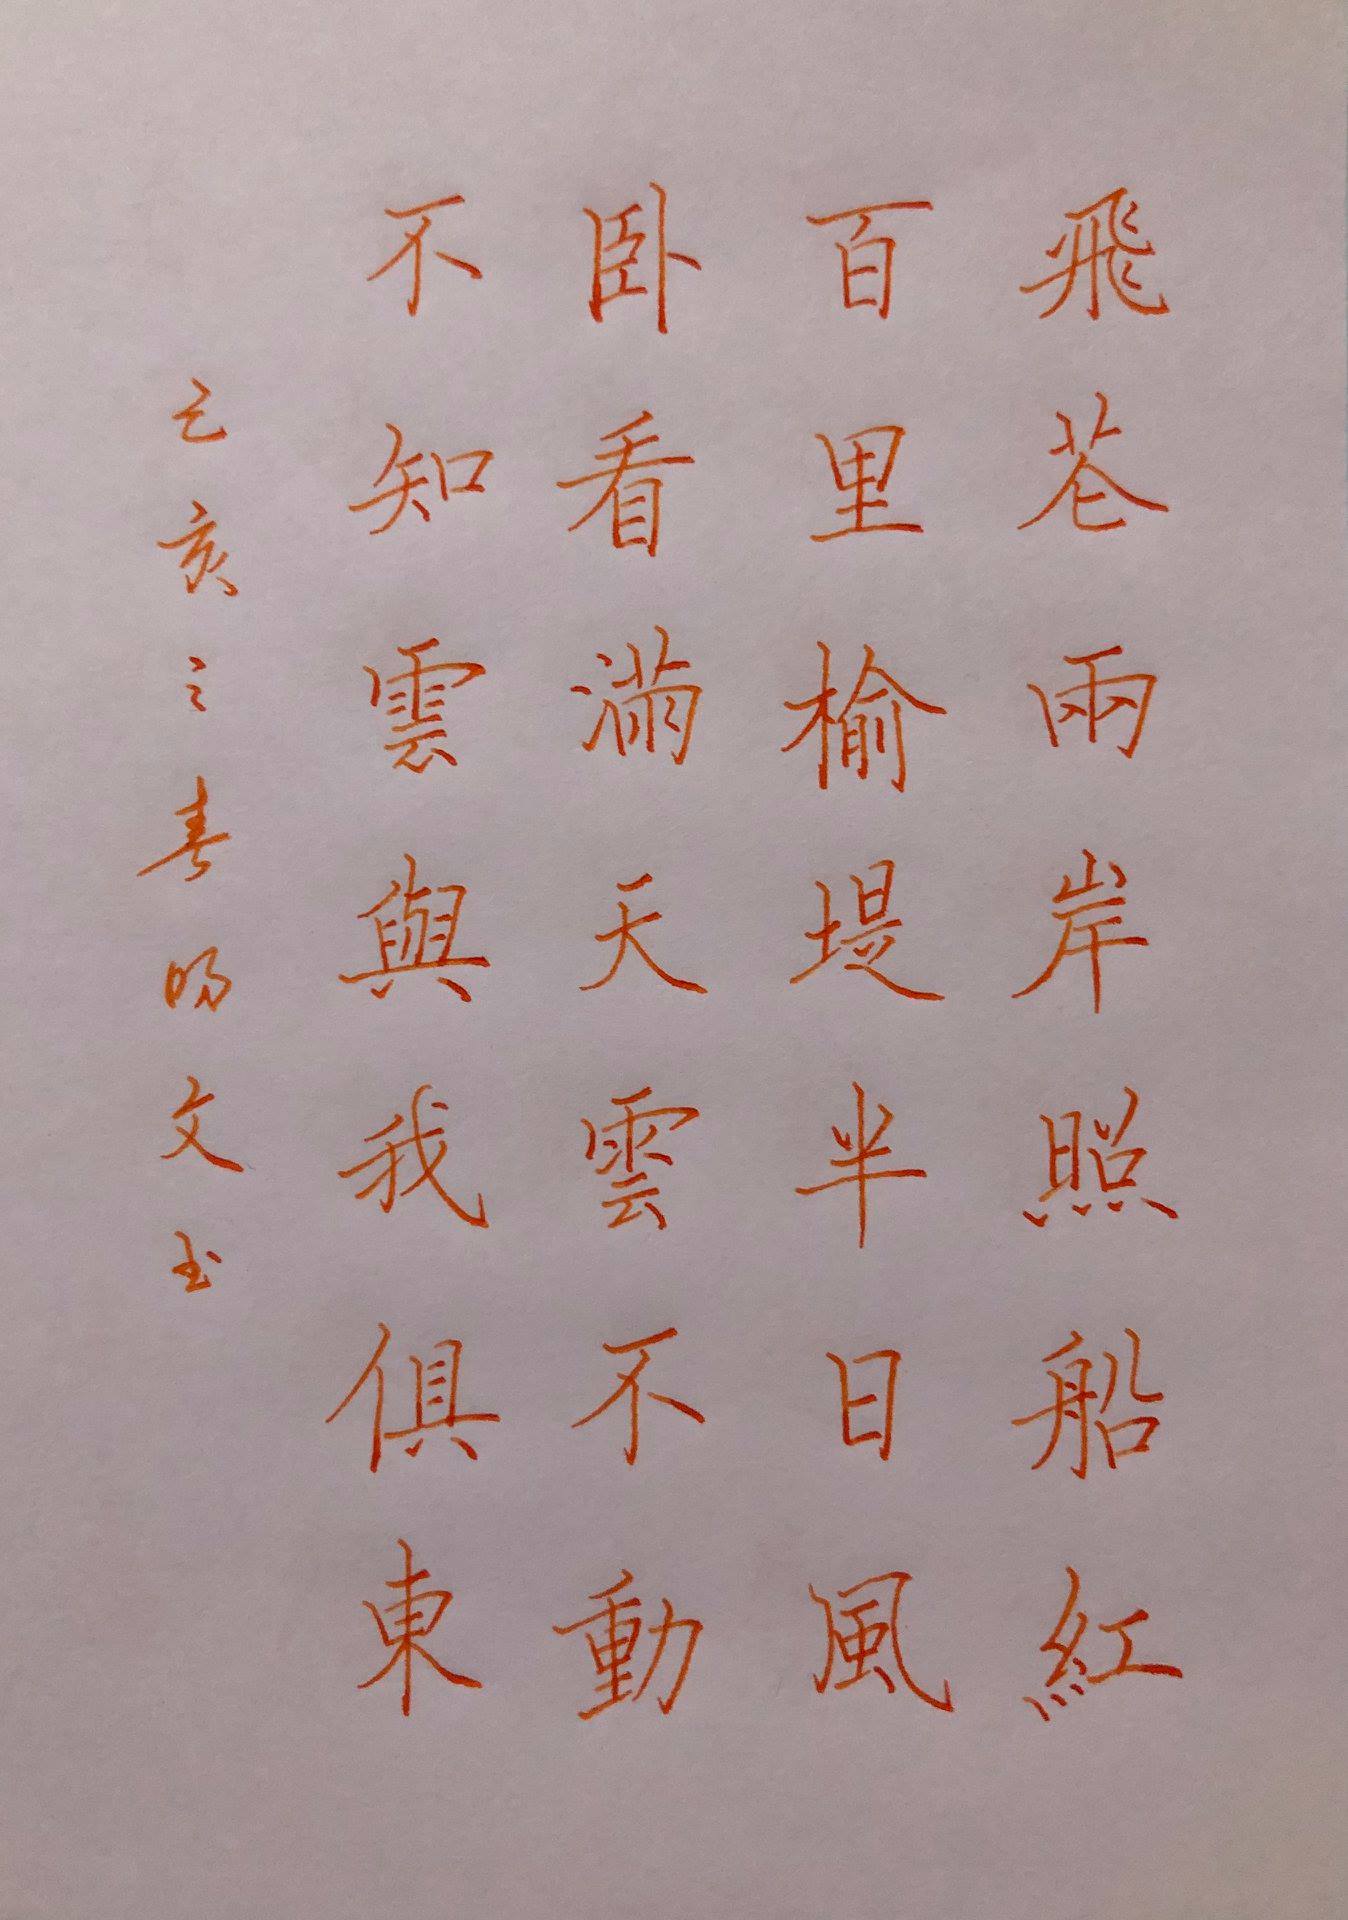 飛花兩岸照船紅
百里榆堤半日風
卧看滿天雲不動
不知雲與我俱東
己亥之春 文书